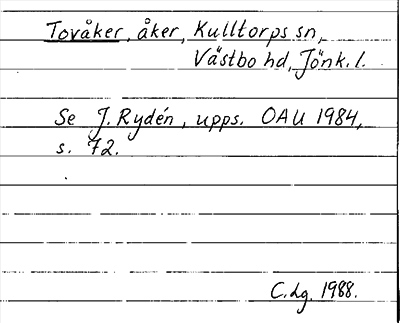 Tovåker, åker, Kulltorps sn,
Västbo hd, Jönk. l.
Se J. Rydén, upps. OAU 1984,
s. 72.
C.Lg. 1988.